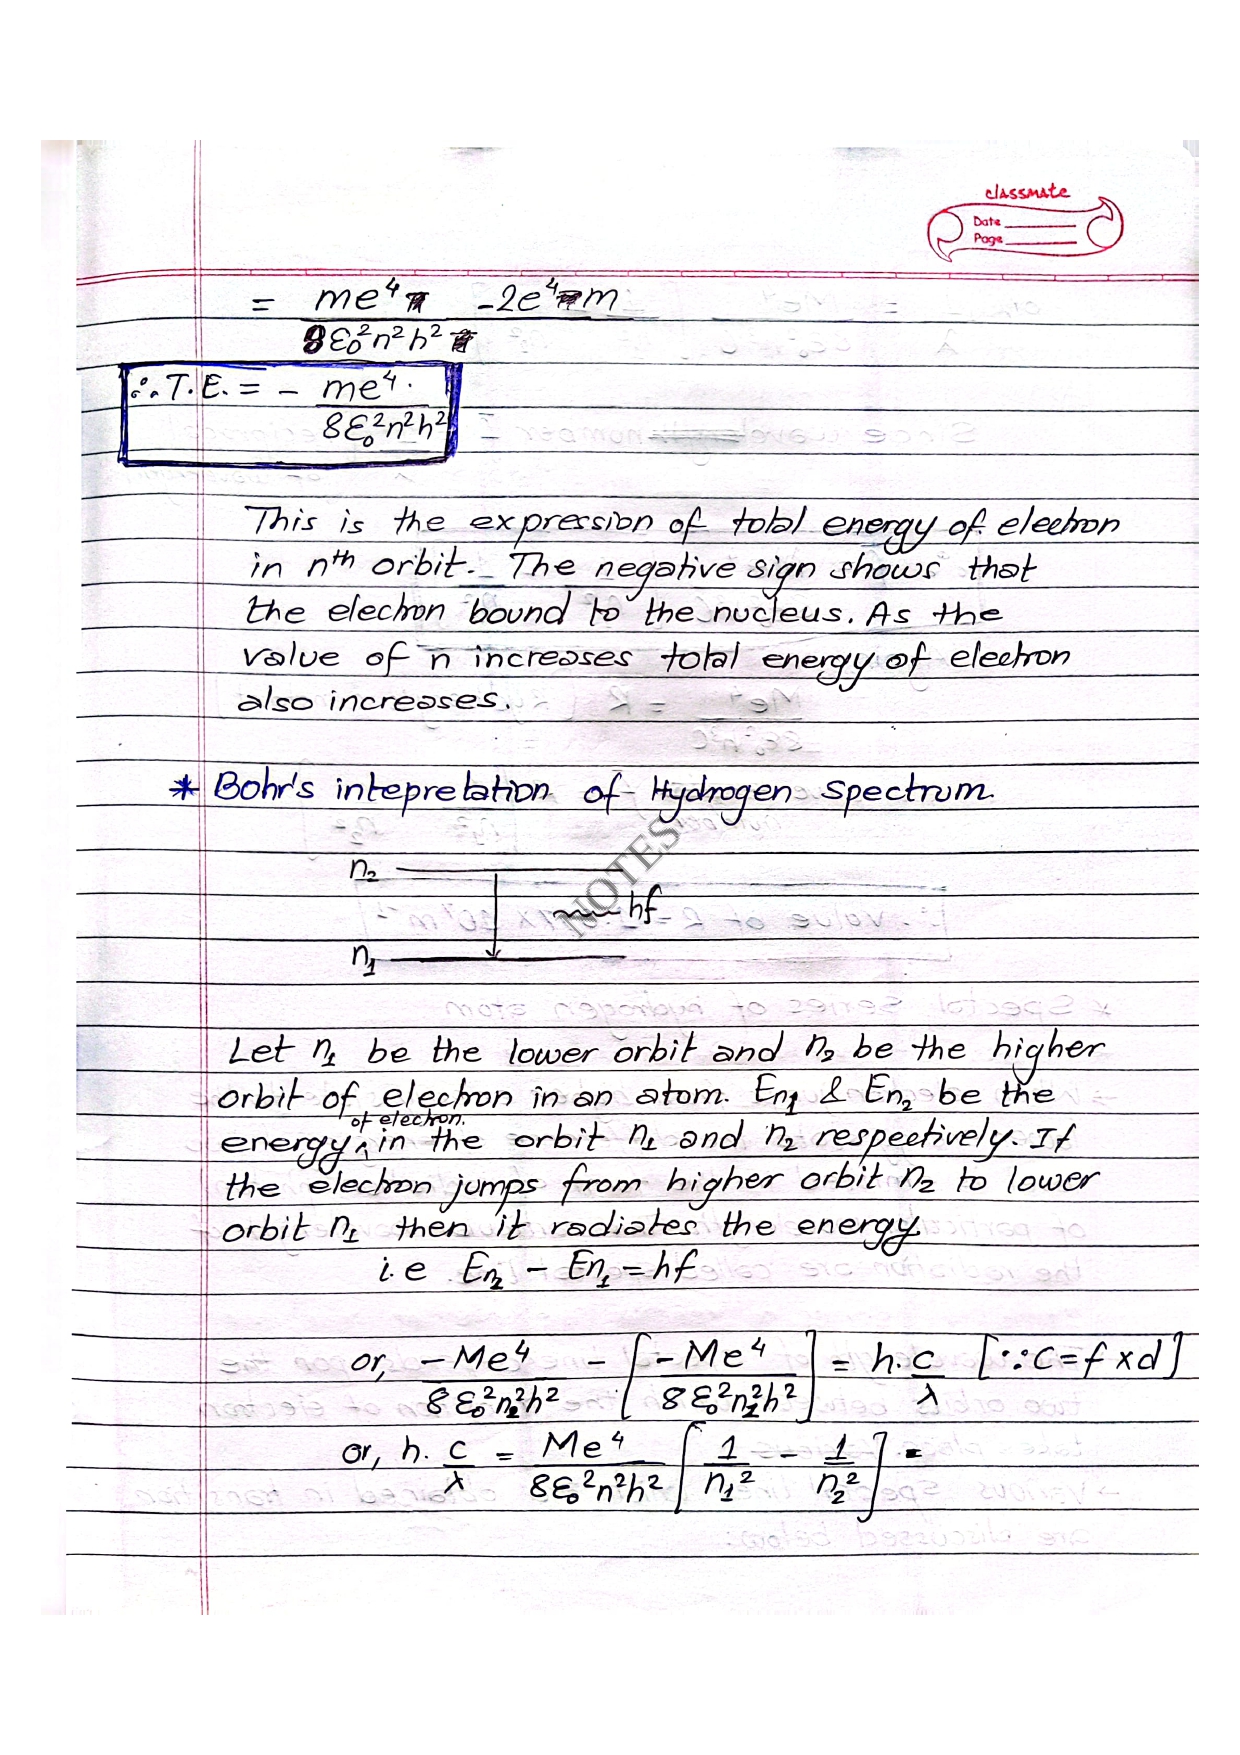 classmate
Date
Page
= me⁴ - 2e⁴ m
8ε₀²n²h²
∴ T.E. = - me⁴.
8ε₀²n²h²
This is the expression of total energy of electron
in nᵗʰ orbit. The negative sign shows that
the electron bound to the nucleus. As the
value of n increases total energy of electron
also increases.
* Bohr's intepretation of Hydrogen Spectrum.
n₂
hf
NOTES
n₁
Let n₁ be the lower orbit and n₂ be the higher
orbit of electron in an atom. En₁ & En₂ be the
energy of electron. in the orbit n₁ and n₂ respectively. If
the electron jumps from higher orbit n₂ to lower
orbit n₁ then it radiates the energy.
i.e En₂ - En₁ = hf
or, -Me⁴ / 8ε₀²n₂²h² - [-Me⁴ / 8ε₀²n₁²h²] = h. c/λ [∵ C = f x d]
or, h. c/λ = Me⁴ / 8ε₀²n²h² [1/n₁² - 1/n₂²] -